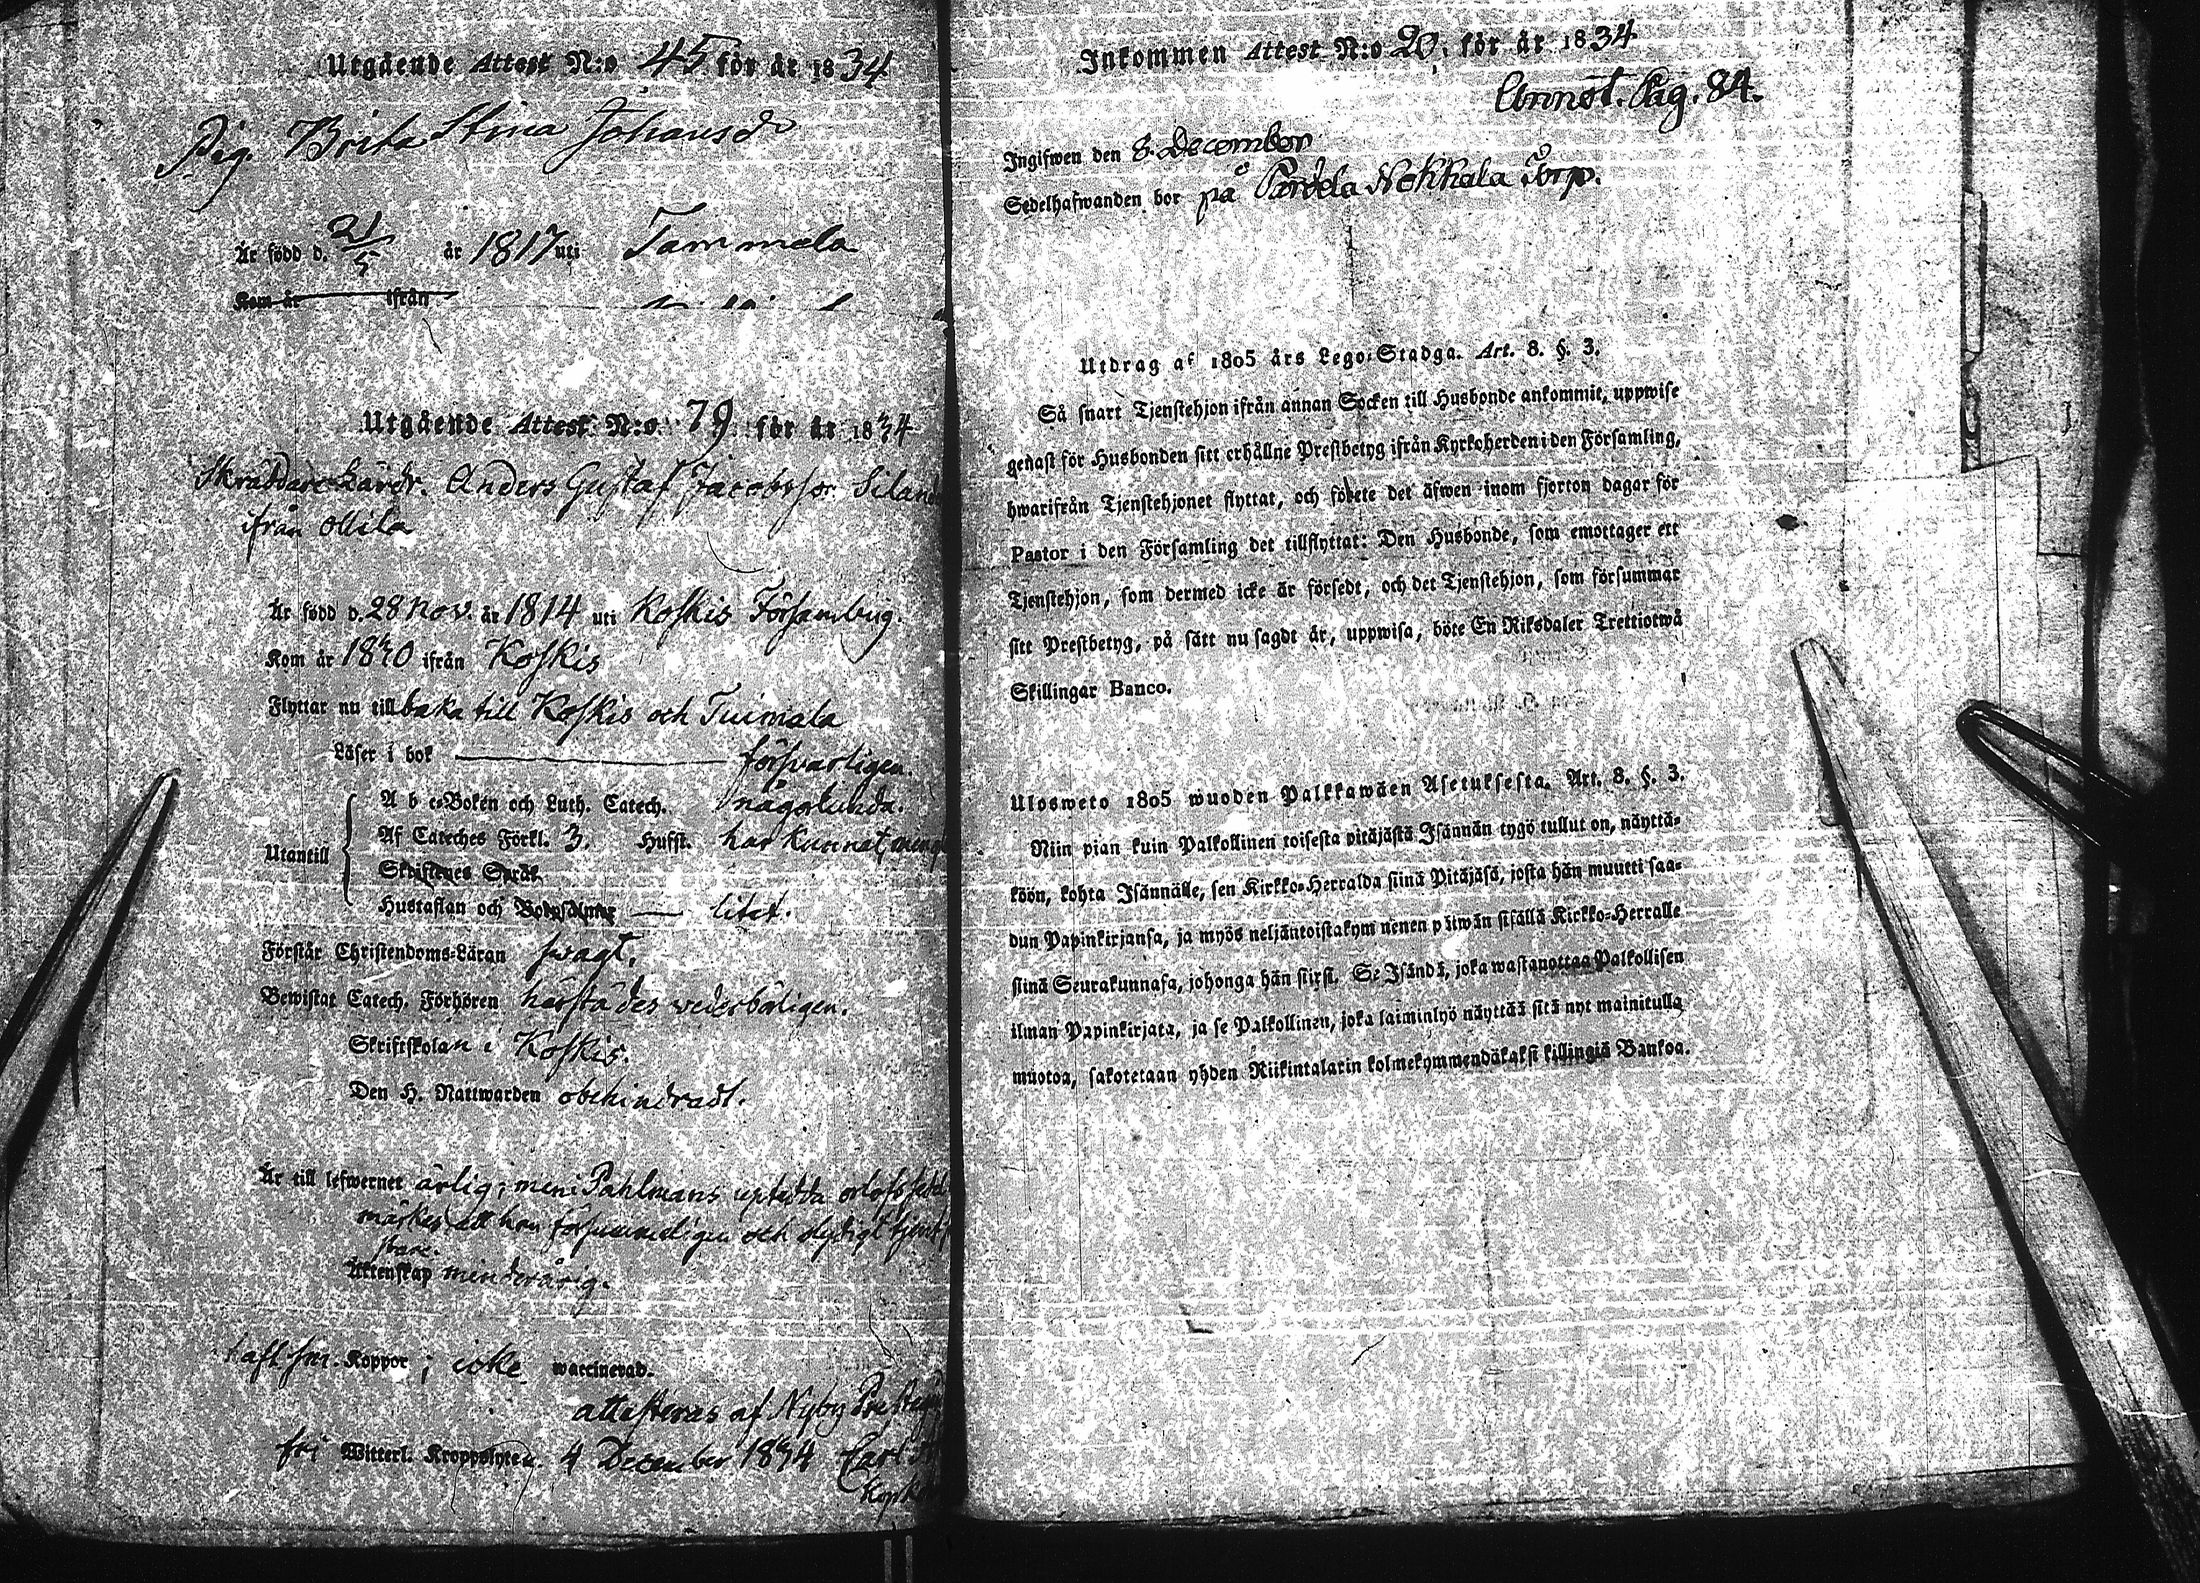 Utgående Attest N:o 45 för år 1834
Pig. Brita Stina Johansd
Är född d. 21/5 år 1817 uti Tammela
Kom år ifrån
Utgående Attest N:o 79 för år 1834
Skräddare Lärdr. Anders Gustaf Jacobsson
ifrån Ollila
Är född d. 28 Nov. år 1814 uti Koskis Församling.
Kom år 1830 ifrån Koskis
Flyttar nu till baka till Koskis och Tuimala
Läser i bok försvarligen.
Utantill
A b c-Boken och Luth. Catech. någorlunda.
Af Cateches Förkl. 3. Hufst. har kunnat,
Skriftenes Språk
Hustaflan och Botpsalmer litet.
Förstår Christendoms-Läran svagt.
Bewistat Catech. Förhören härstädes vederbörligen.
Skriftskolan i Koskis.
Den H. Nattwarden obehindradt.
Är till lefwernet ärlig; men i Pahlmans
märkes att han försummeligen och
Äktenskap minderårig.
haft Koppor; icke waccinerad.
attesteras af Nyby
fri Witterl. Kroppslyten 4 December 1834 Carl
Inkommen Attest N:o 20. för år 1834
Annot. Pag. 84.
Ingifwen den 8. December
Sedelhafwanden bor på Pardela Nokkala Torp.
Utdrag af 1805 års Lego-Stadga. Art. 8. §. 3.
Så snart Tjenstehjon ifrån annan Socken till Husbonde ankommit, uppwise
genast för Husbonden sitt erhållne Prestbetyg ifrån Kyrkoherden i den Församling,
hwarifrån Tjenstehjonet flyttat, och förete det äfwen inom fjorton dagar för
Pastor i den Församling det tillflyttat: Den Husbonde, som emottager ett
Tjenstehjon, som dermed icke är försedt, och det Tjenstehjon, som försummar
sitt Prestbetyg, på sätt nu sagdt är, uppwisa, böte En Riksdaler Trettiotwå
Skillingar Banco.
Ulosweto 1805 wuoden Palkkawäen Asetuksesta. Art. 8. §. 3.
Niin pian kuin Palkollinen toisesta pitäjästä Isännän tygö tullut on, näyttä-
köön, kohta Isännälle, sen Kirkko-Herralda siinä Pitäjäsä, josta hän muutti saa-
dun Papinkirjansa, ja myös neljäntoistakymmenen päiwän sisällä Kirkko-Herralle
siinä Seurakunnasa, johonga hän siirsi. Se Isändä, joka wastanottaa Palkollisen
ilman Papinkirjata, ja se Palkollinen, joka laiminlyö näyttää sitä nyt mainitulla
muotoa, sakotetaan yhden Riikintalarin kolmekymmendäkaksi killingiä Bankoa.